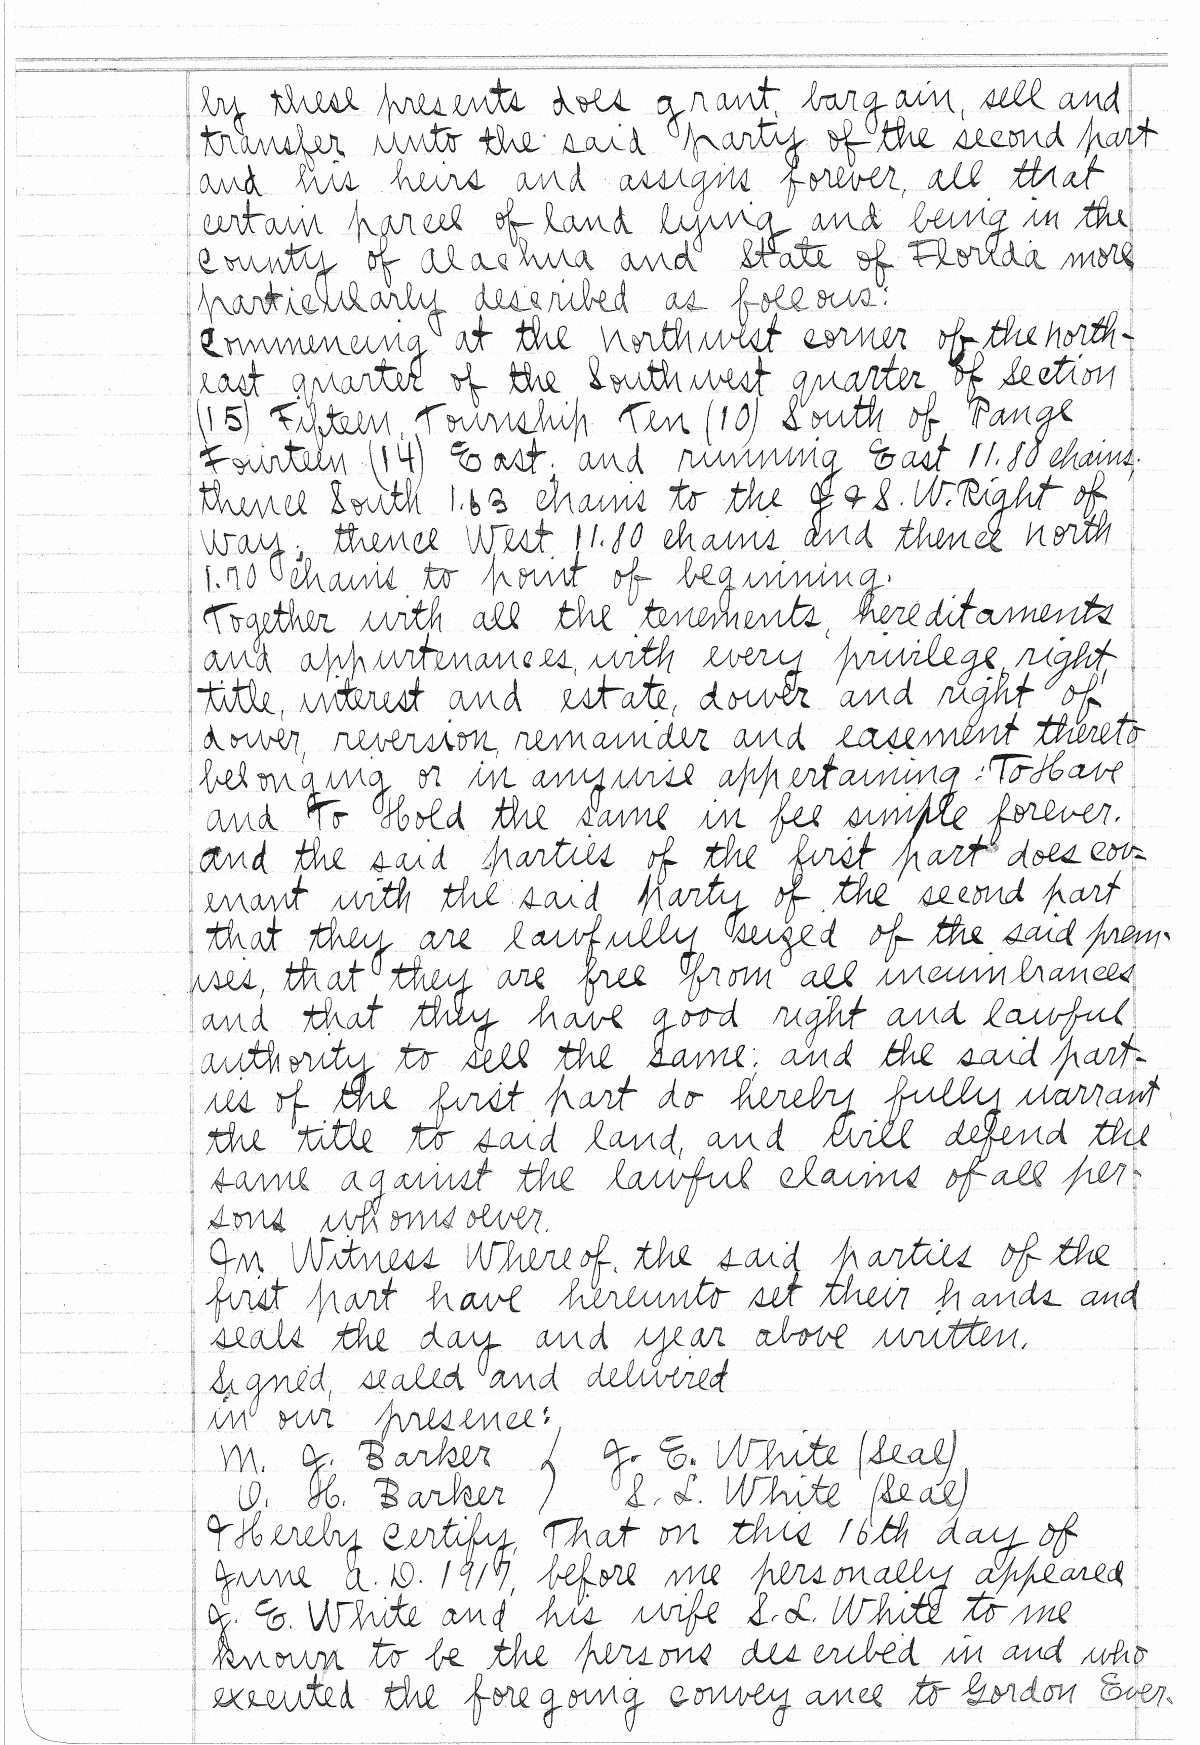 by these presents does grant, bargain, sell and
transfer unto the said party of the second part
and his heirs and assigns forever, all that
certain parcel of land lying and being in the
County of Alachua and State of Florida more
particularly described as follows:
Commencing at the northwest corner of the north-
east quarter of the Southwest quarter of Section
(15) Fifteen, Township Ten (10) South of Range
Fourteen (14) East; and running East 11.80 chains;
thence South 1.63 chains to the J & S. W. Right of
Way; thence West 11.80 chains and thence north
1.70 chains to point of beginning.
Together with all the tenements, hereditaments
and appurtenances, with every privilege, right,
title, interest and estate, dower and right of
dower, reversion, remainder and easement thereto
belonging or in anywise appertaining: To Have
and To Hold the same in fee simple forever.
And the said parties of the first part does cov=
enant with the said party of the second part
that they are lawfully seized of the said prem-
ises, that they are free from all incumbrances
and that they have good right and lawful
authority to sell the same; and the said part-
ies of the first part do hereby fully warrant
the title to said land, and will defend the
same against the lawful claims of all per-
sons whomsoever.
In Witness Whereof, the said parties of the
first part have hereunto set their hands and
seals the day and year above written.
Signed, sealed and delivered
in our presence:
M. J. Barker } J. E. White (Seal)
O. H. Barker } S. L. White (Seal)
I Hereby Certify, That on this 16th day of
June A. D. 1917, before me personally appeared
J. E. White and his wife S. L. White to me
known to be the persons described in and who
executed the foregoing conveyance to Gordon Ever-